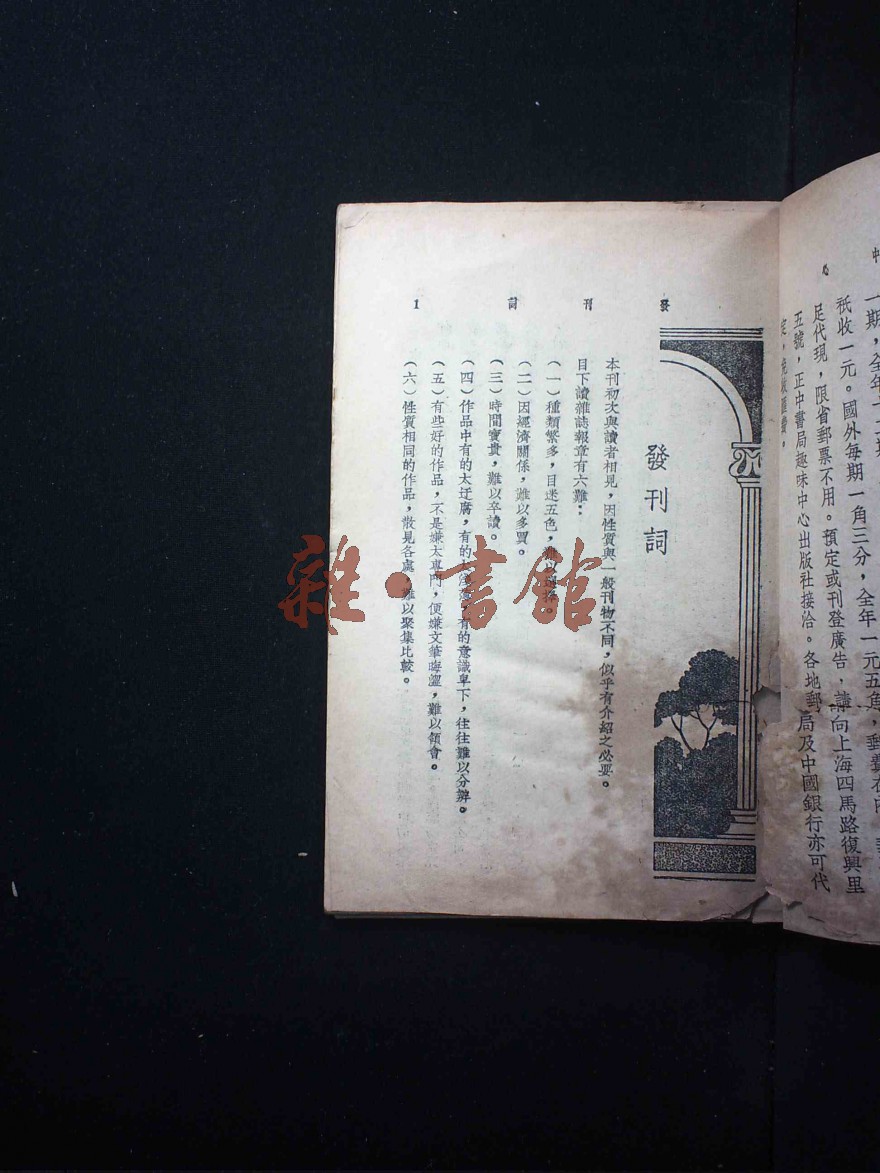 一期，全年十二期
祇收一元。國外每期一角三分，全年一元五角，郵費在內。
足代現，限省郵票不用。預定或刊登廣告，請向上海四馬路復興里
五號，正中書局趣味中心出版社接洽。各地郵局及中國銀行亦可代
發刊詞
發刊詞 1
本刊初次與讀者相見，因性質與一般刊物不同，似乎有介紹之必要。
目下讀雜誌報章有六難：
（一）種類繁多，目迷五色，難以選擇。
（二）因經濟關係，難以多買。
（三）時間寶貴，難以卒讀。
（四）作品中有的太迂腐，有的太，有的意識卑下，往往難以分辨。
（五）有些好的作品，不是嫌太專門，便嫌文筆晦澀，難以領會。
（六）性質相同的作品，散見各處，難以聚集比較。
雜·書館